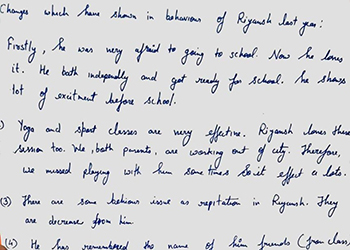 Changes which have shown in behaviours of Riyansh last year:
Firstly, he was very afraid to going to school. Now he loves
it. He bath independly and got ready for school. he shows
lot of excitment before school.
) Yoga and sport classes are very effective. Riyansh loves these
session too. We, both parents, are working out of city. Therefore,
we missed playing with him some times so it effect a lots.
(3) There are some behious issue as repitation in Riyansh. They
are decrease from him.
(4) He has remembered the name of him friends (from class